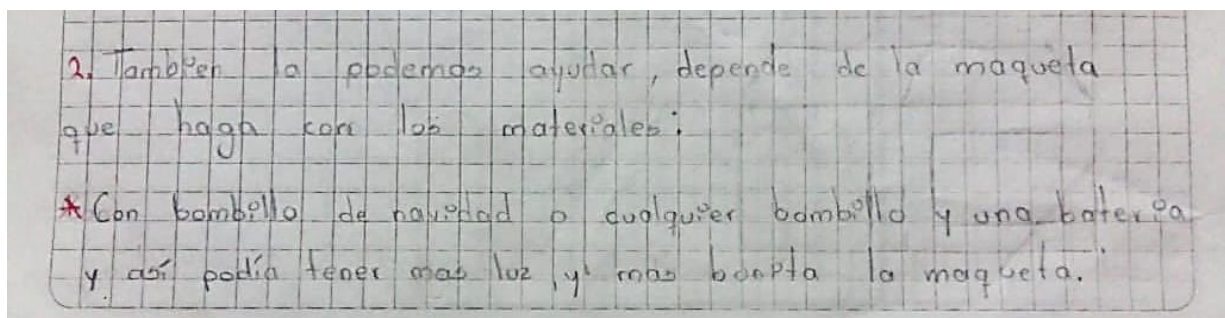 2. Tambien la podemos ayudar, depende de la maqueta
que haga con los materiales:
* Con bombillo de navidad o cualquier bombillo y una bateria
y así podía tener mas luz, y mas bonita la maqueta.